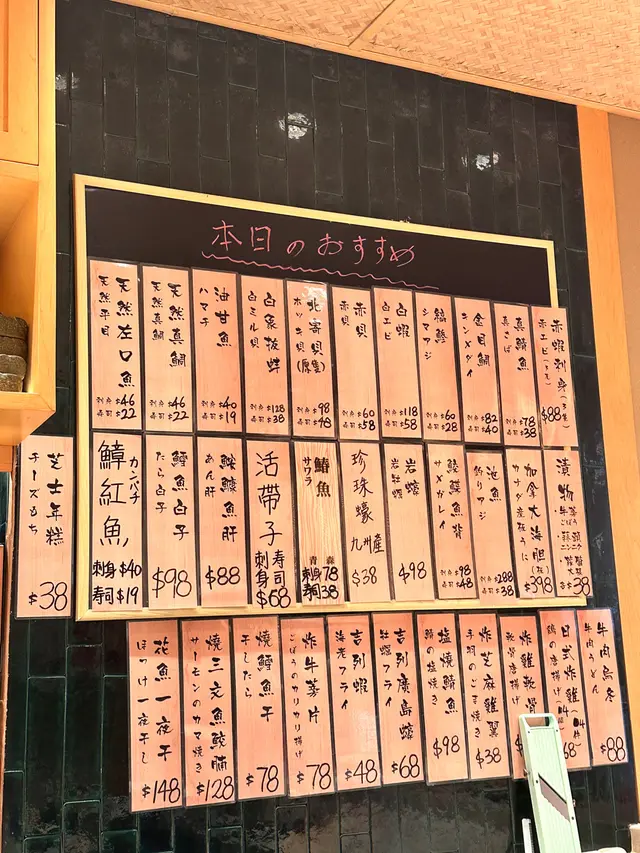 本日のおすすめ
赤蝦刺身(5隻)
赤エビ(5隻)
$88
真鯖魚
真さば
刺身 $78
寿司 $38
金目鯛
キンメダイ
刺身 $82
寿司 $40
縞鯵
シマアジ
刺身 $60
寿司 $28
白蝦
白エビ
刺身 $118
寿司 $58
赤貝
赤貝
刺身 $60
寿司 $58
北寄貝(原隻)
ホッキ貝
刺身 $98
寿司 $98
白象拔蚌
白ミル貝
刺身 $128
寿司 $38
油甘魚
ハマチ
刺身 $40
寿司 $19
天然真鯛
天然真鯛
刺身 $46
寿司 $22
天然左口魚
天然平目
刺身 $46
寿司 $22
漬物
$38
加拿大海膽(板)
カナダ産板うに
$398
池魚
釣りアジ
$288
$38
鰈魚背
サメガレイ
$98
$48
岩蠔
岩牡蠣
$98
珍珠蠔
九州産
$38
鰆魚
サワラ
青森
刺身 78
寿司 38
活帶子
寿司
刺身
$68
鮟鱇魚肝
あん肝
$88
鱈魚白子
たら白子
$98
鱆紅魚
カンパチ
刺身 $40
寿司 $19
芝士年糕
チーズもち
$38
牛肉烏冬
牛肉うどん
$88
日式炸雞
鶏の唐揚げ
炸雞軟骨
軟骨唐揚げ
炸芝麻雞翼
手羽のごま焼き
$38
塩焼鯖魚
鯖の塩焼き
$98
吉列廣島蠔
牡蠣フライ
$68
吉列蝦
海老フライ
$48
炸牛蒡片
ごぼうのカリカリ揚げ
$78
燒鱈魚干
干したら
$78
燒三文魚鮫腩
サーモンのカマ焼き
$128
花魚一夜干
ほっけ一夜干し
$148